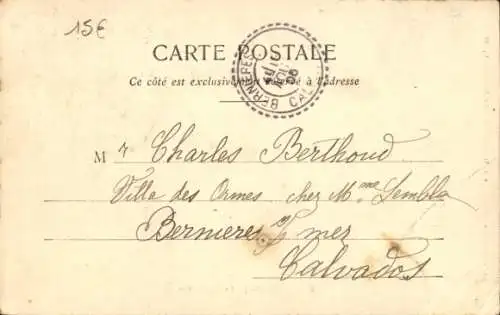 15€
CARTE POSTALE
Ce côté est exclusivement réservé à l'adresse
BERNIERES CAL
M r Charles Berthoud
Ville des Ormes chez Mme
Bernieres s/ mer
Calvados